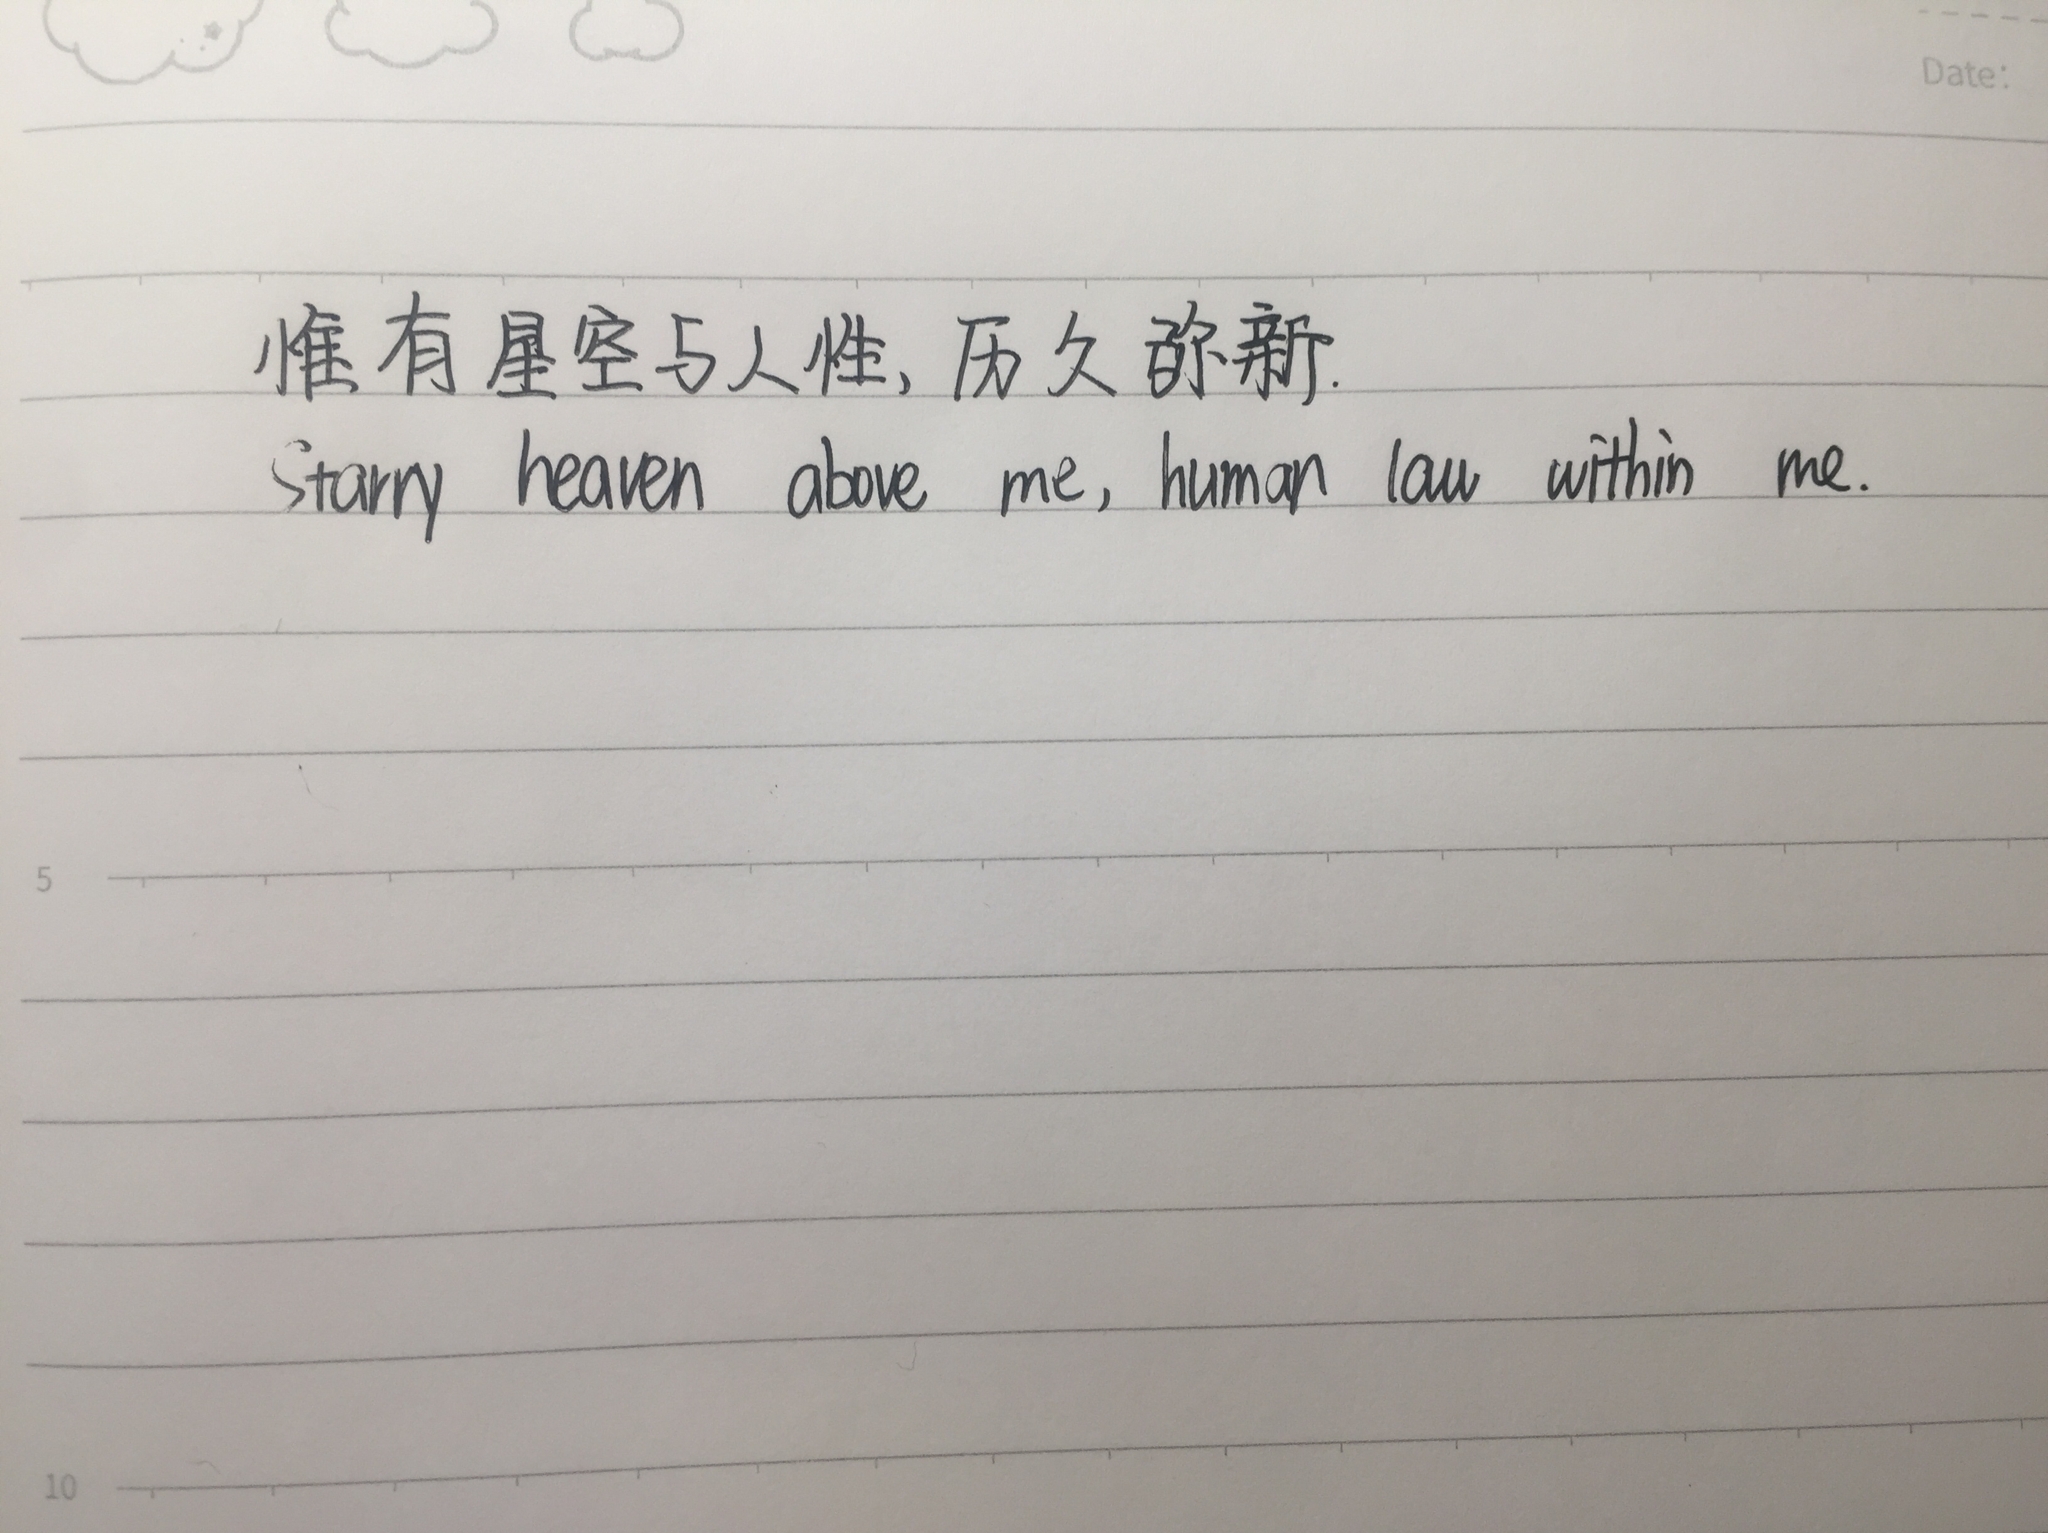 Date:
惟有星空与人性,历久弥新.
Starry heaven above me, human law within me.
5
10